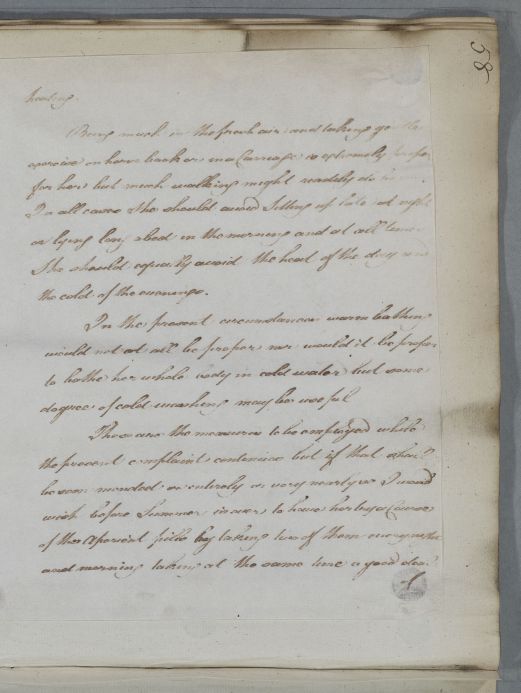 58
heating.
Being much in the fresh air and taking gentle
exercise on horse back or in a Carriage is extremely proper
for her but much walking might readily do harm.
In all cases She should avoid Sitting up late at night
or lying long abed in the morning and at all times
She should equally avoid the heat of the day and
the cold of the evenings.
In the present circumstances warm bathing
would not at all be proper nor would it be proper
to bathe her whole body in cold water but some
degree of cold washing may be useful
These are the measures to be employed while
the present complaint continues but if that shall
be soon mended or entirely or very nearly so I would
wish before Summer is over to have her try a Course
of the Aperient pills by taking two of them every night
and morning taking at the same time a good deal